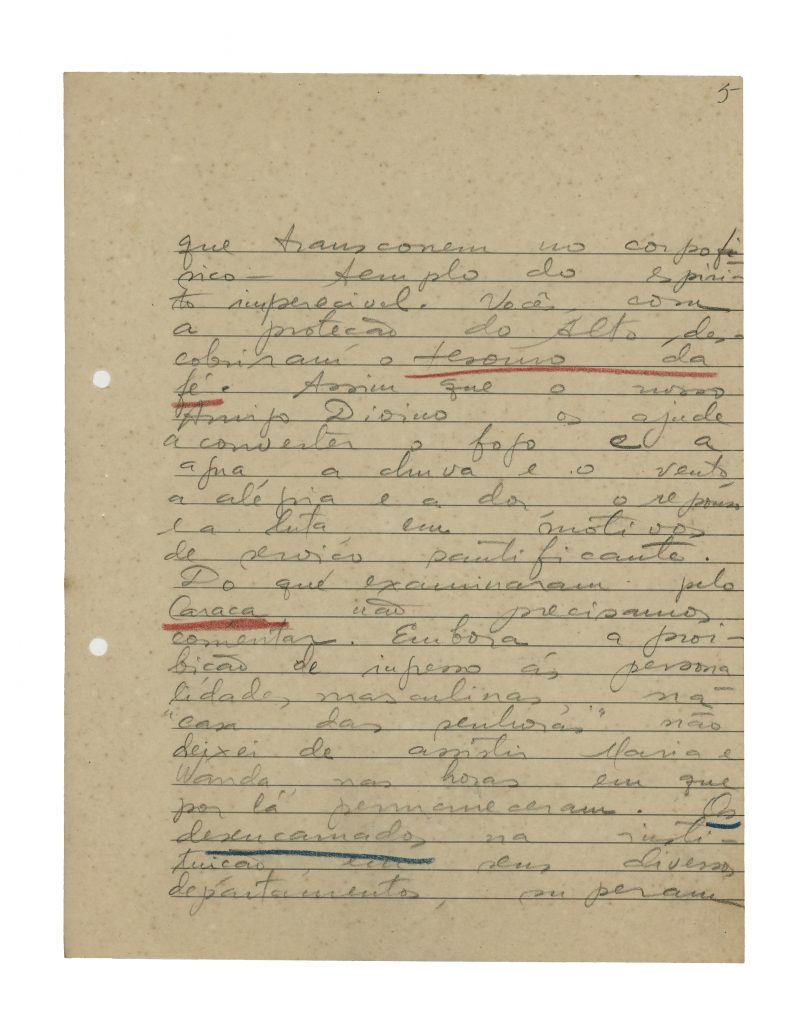 5
que transcorrem no corpo fí-
sico — templo do espíri-
to imperecivel. Vocês, com
a proteção do Alto des-
cobriram o tesouro da
fé. Assim que o nosso
Amigo Divino os ajude
a converter o fogo e a
agua, a chuva e o vento
a alégria e a dor o repouso
e a luta em motivos
de serviço santificante.
Do que examinaram pelo
Caraca não precisamos
comentar. Embora a proi-
bicão de ingresso ás persona
lidades masculinas, na
"casa das senhoras" não
deixei de assistir Maria e
Wanda, nas horas em que
por lá permaneceram. Os
desencarnados na insti-
tuicão, em seus diversos
departamentos, superam